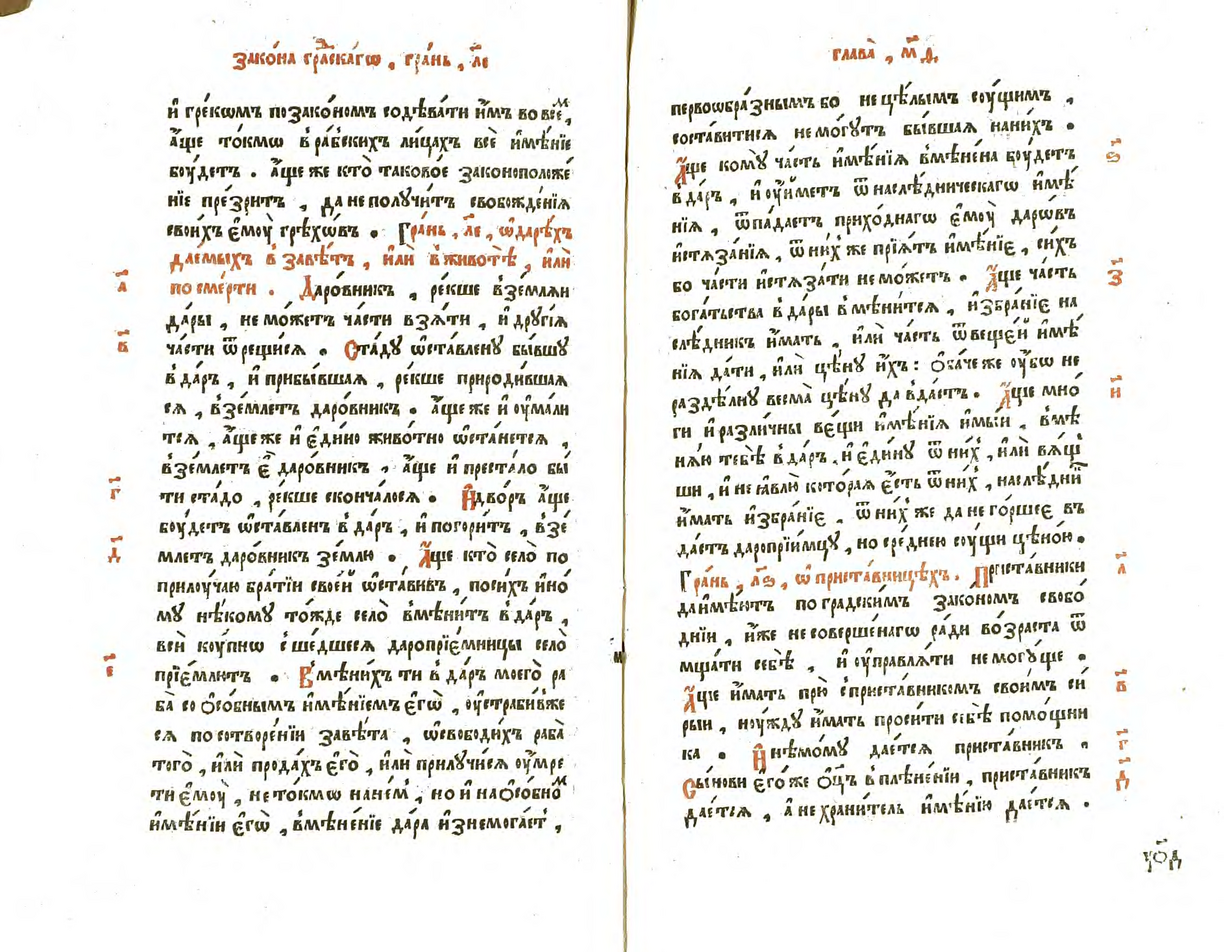 Зако́на гра́дскагѡ , гра́нь , л҃е
и҆ гре́кѡмъ позако́номъ содѣва́ти и҆̀мъ во все́мъ ,
а҆́ще то́кмѡ в ра́бскихъ ли́цахъ всѐ и҆мѣ́нїе
бꙋ́детъ . а҆́ще же кто̀ таково́е законоположе́
нїе пре́зритъ , да не полꙋ́читъ свобожде́нїѧ
свои́хъ є҆мꙋ̀ грѣхѡ́въ . Гра́нь , л҃е , ѡ҆ да́рѣхъ
дае́мыхъ в завѣ́тъ , и҆лѝ в животѣ̀ , и҆лѝ
по сме́рти . Даро́вникъ , ре́кше взе́млѧи
а҃
да́ры , не мо́жетъ ча́сти взѧ́ти , и҆ дрꙋгі́ѧ
ча́сти ѿрещи́сѧ . Ста́дꙋ ѡ҆ста́вленꙋ бы́вшꙋ
в҃
в да́ръ , и҆ прибы́вшаѧ , ре́кше природи́вшаѧ
сѧ , взе́млетъ даро́вникъ . а҆́ще же и҆ ᲂу҆мали
тсѧ , а҆́ще же и҆ є҆ди́но живо́тно ѡ҆ста́нетсѧ ,
взе́млетъ є҆̀ даро́вникъ , а҆́ще и҆ преста́ло бы́
ти ста́до , ре́кше сконча́лосѧ . И҆ дво́ръ а҆́ще
г҃
бꙋ́детъ ѡ҆ста́вленъ в да́ръ , и҆ погори́тъ , взе́
млетъ даро́вникъ зе́млю . А҆́ще кто̀ село̀ по
д҃
прилꙋ́чаю бра́тїи свое́й ѡ҆ста́вивъ , поси́хъ и҆но́
мꙋ нѣ́комꙋ то́жде село̀ вмѣни́тъ в да́ръ ,
всѝ кꙋ́пнѡ сше́дшесѧ даропрїе́мницы село̀
прїе́млютъ . Вмѣни́хъ ти в да́ръ моего̀ ра
є҃
ба̀ со ѻ҆со́бнымъ и҆мѣ́нїемъ є҆гѡ̀ , ᲂу҆страби́в же
сѧ по сотворе́нїи завѣ́та , ѡ҆свободи́хъ раба̀
того̀ , и҆лѝ прода́хъ є҆го̀ , и҆лѝ прилꙋчи́сѧ ᲂу҆мре́
ти є҆мꙋ̀ , не то́кмѡ на не́м , но и҆ на ѻ҆со́бномъ
и҆мѣ́нїи є҆гѡ̀ , вмѣне́нїе да́ра и҆знемога́ет ,
глава̀ , м҃д
первоѡбра́знымъ бо не цѣ́лымъ сꙋ́щимъ ,
соста́витисѧ не мо́гꙋтъ бы́вшаѧ на ни́хъ .
А҆́ще комꙋ̀ ча́сть и҆мѣ́нїѧ вмѣне́на бꙋ́детъ
ѕ҃
в да́ръ , и҆ ᲂу҆́йметъ ѿ наслѣ́дническагѡ и҆мѣ́
нїѧ , ѿпа́даетъ прихо́днагѡ є҆мꙋ̀ дарѡ́въ
и҆стѧза́нїѧ , ѿ ни́х же прїѧ́тъ и҆мѣ́нїе , си́хъ
бо ча́сти и҆стѧза́ти не мо́жетъ . А҆́ще ча́сть
з҃
бога́тьства в да́ры вмѣни́тсѧ , и҆збра́нїе на
слѣ́дникъ и҆́мать , и҆лѝ ча́сть ѿ веще́й и҆мѣ́
нїѧ да́ти , и҆лѝ цѣ́нꙋ и҆́хъ : ѻ҆ба́че же ᲂу҆́бѡ не
раздѣ́лнꙋ весма̀ цѣ́нꙋ да вда́стъ . А҆́ще мно́
и҃
ги и҆ разли́чны ве́щи и҆мѣ́нїѧ и҆мы́й , вмѣ
нѧ́ю тебѣ̀ в да́ръ , и҆ є҆ди́нꙋ ѿ ни́х , и҆лѝ вѧ́щ
ши , и҆ не ꙗ҆влю̀ кото́раѧ є҆́сть ѿ ни́х , наслѣ́дник
и҆́мать и҆збра́нїе , ѿ ни́х же да не го́ршее въ
да́стъ даропрїи́мцꙋ , но сре́днею сꙋ́щи цѣно́ю .
Гра́нь , л҃ѕ , ѡ҆ приста́вницѣхъ . Приста́вники
а҃
да и҆мѣ́ютъ по гра́дскимъ зако́номъ свобо́
днїи , и҆̀же не соверше́нагѡ ра́ди во́зраста ѿ
мща́ти себѣ̀ , и҆ ᲂу҆правлѧ́ти не могꙋ́ще .
А҆́ще и҆́мать прю̀ с приста́вникомъ свои́мъ си́
в҃
рыи , нꙋ́ждꙋ и҆́мать проси́ти себѣ̀ помо́щни
ка . И҆ нѣмо́мꙋ дае́тсѧ приста́вникъ .
г҃
Сы́нови є҆го́же ѻ҆ц҃ъ в плѣне́нїи , приста́вникъ
д҃
дае́тсѧ , а҆ не храни́тель и҆мѣ́нїю дае́тсѧ .
ѵ҃ѻд